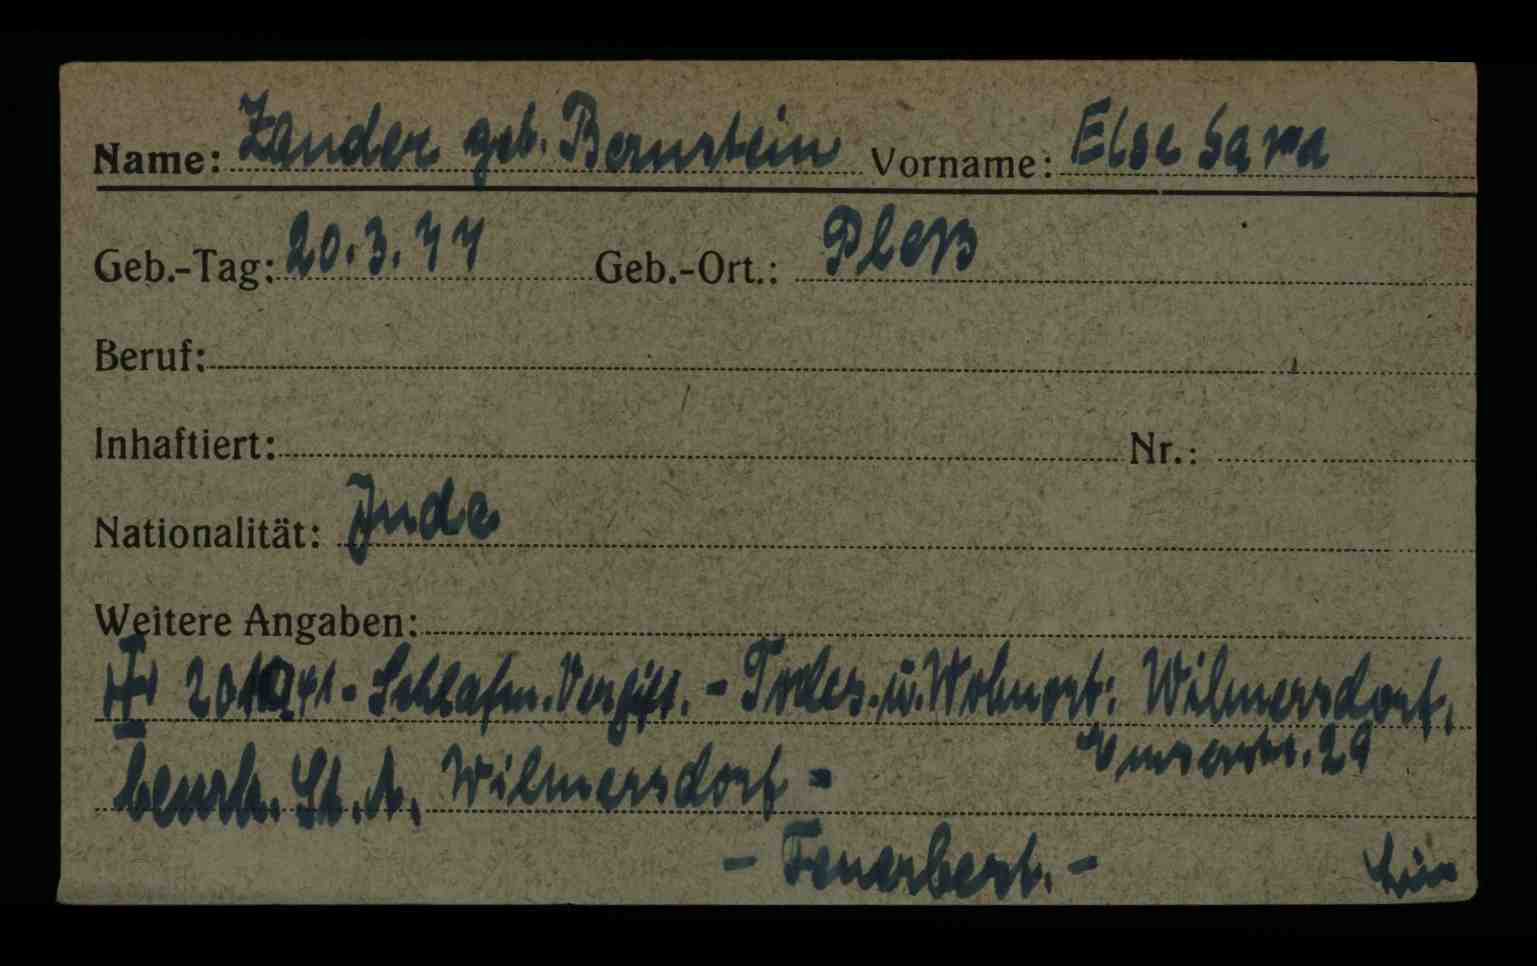 Name: Zander geb. Bernstein Vorname: Else Sara
Geb.-Tag: 20.3.77 Geb.-Ort.: Pleß
Beruf:
Inhaftiert: Nr.:
Nationalität: Jude
Weitere Angaben:
41 - Schlafm. Vergift. - Todes- u. Wohnort: Wilmersdorf,
29
beurk. St. A. Wilmersdorf -
- Feuerbest. -